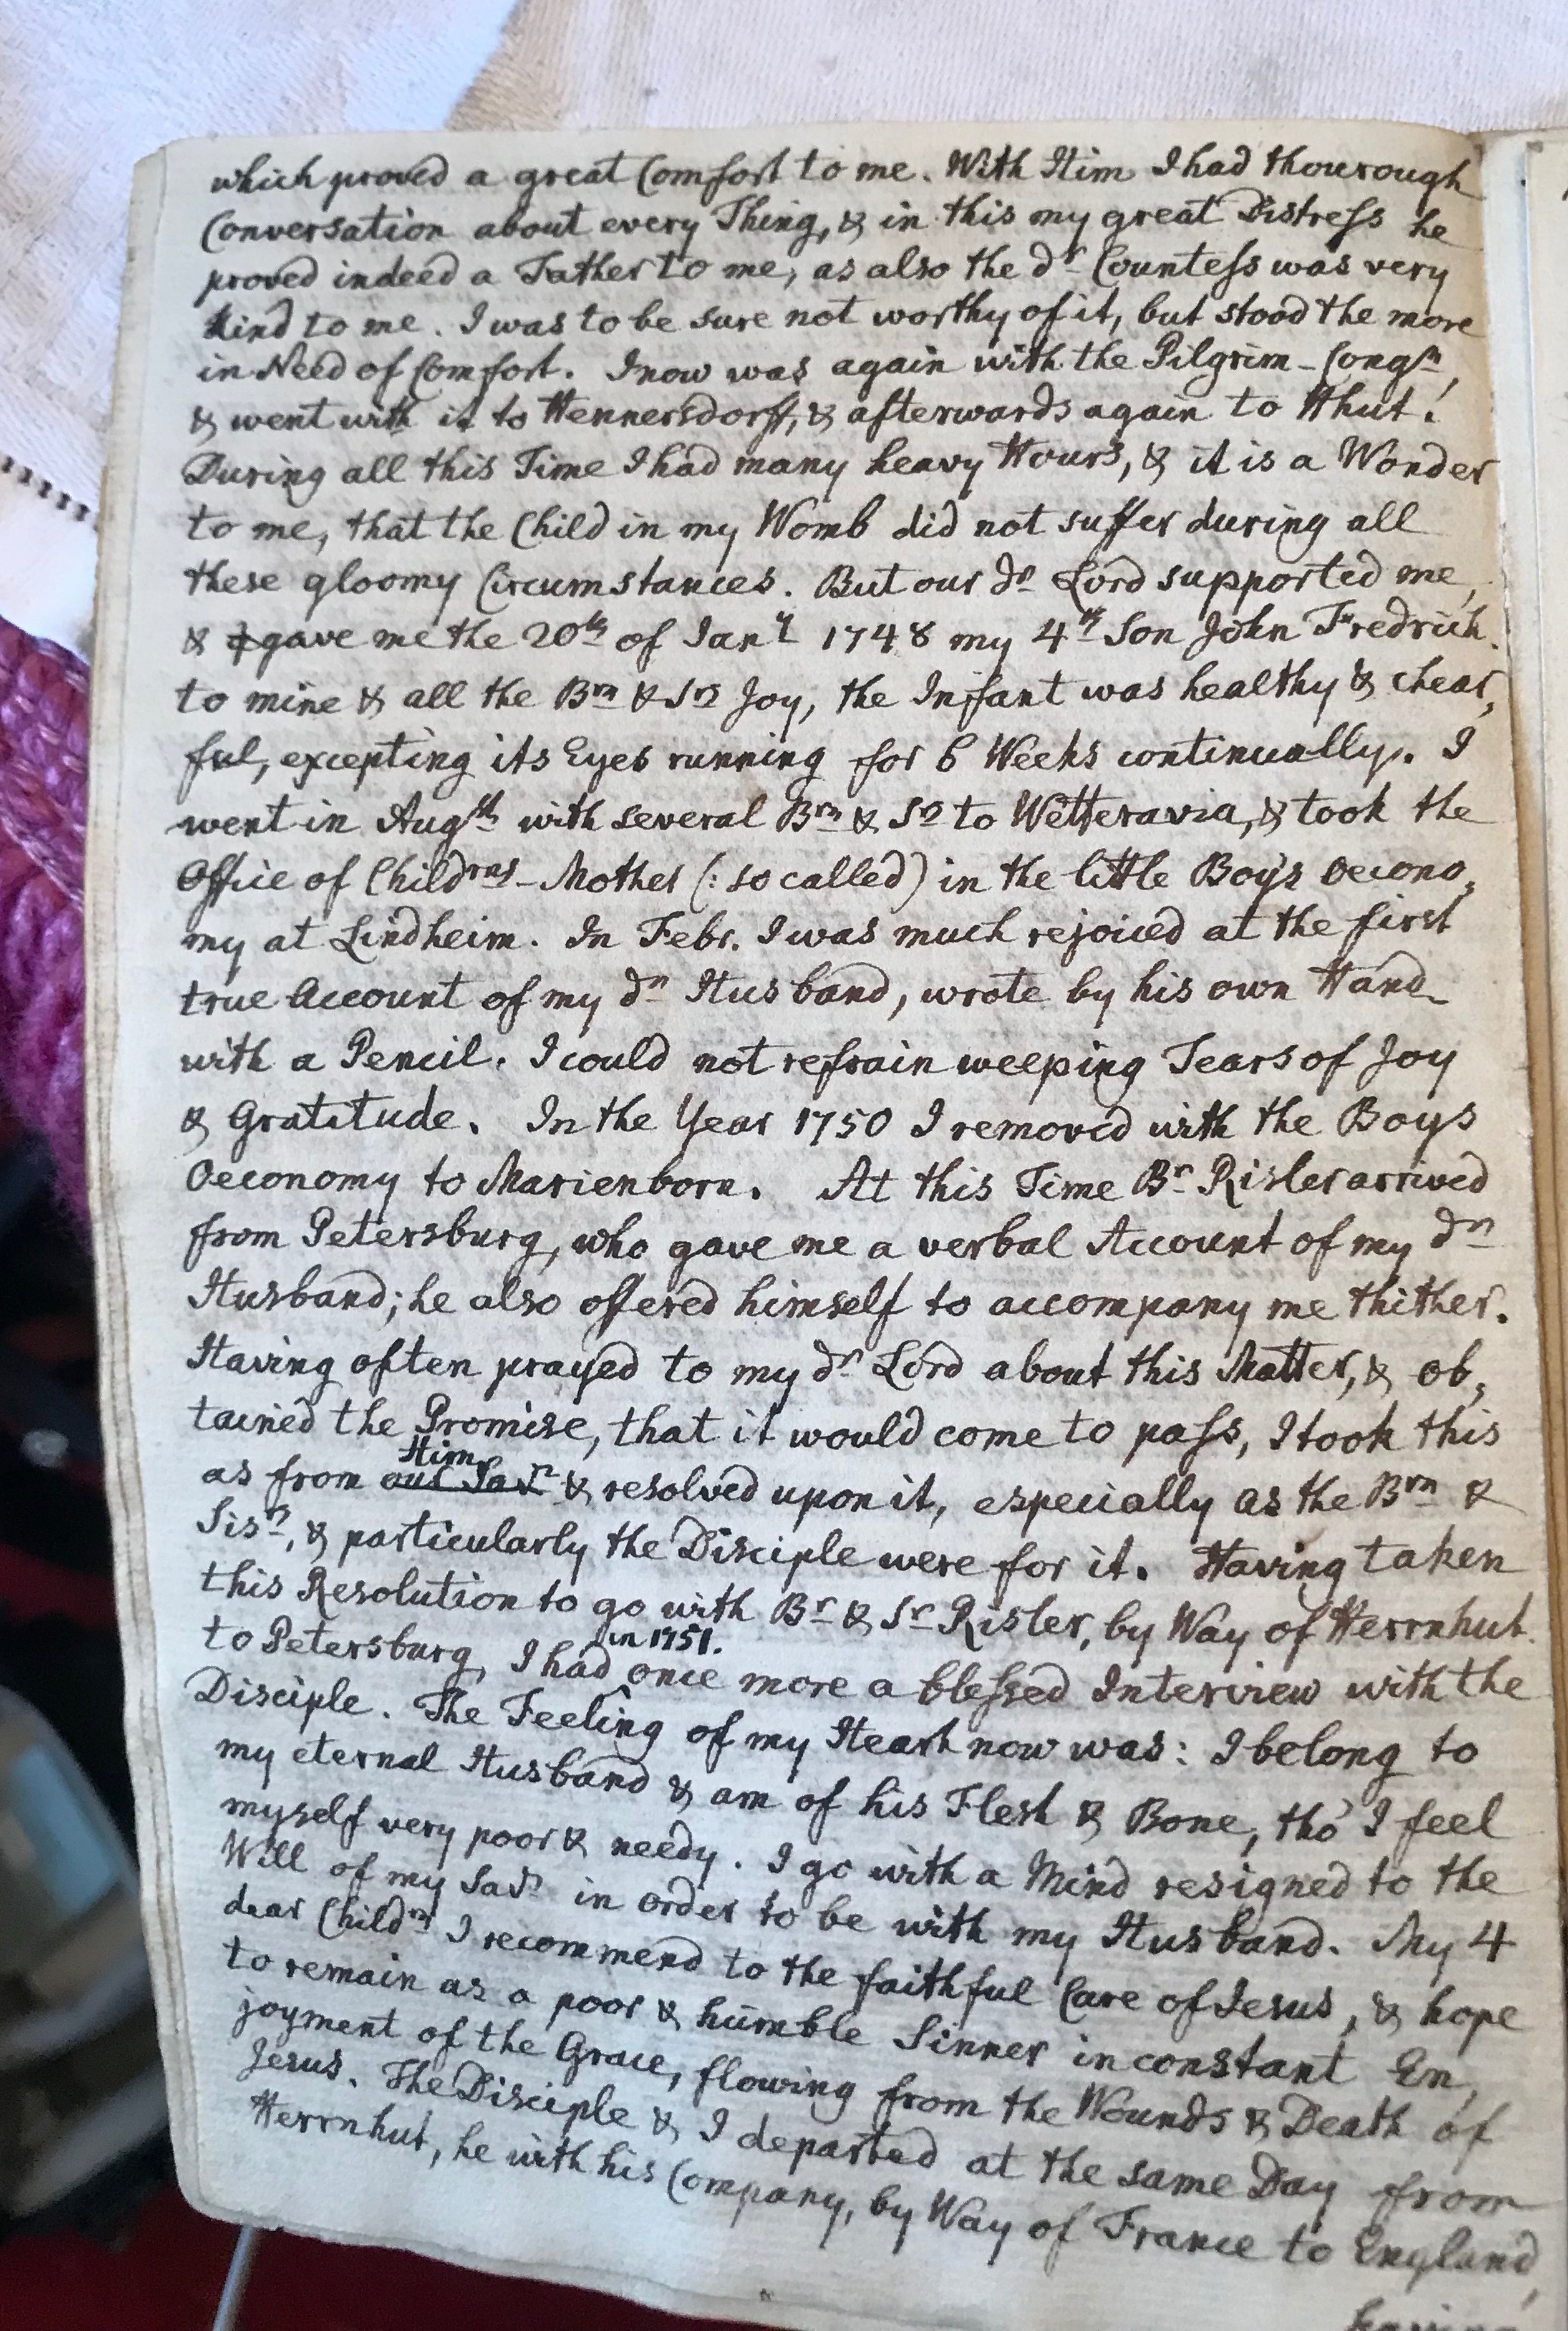 which proved a great Comfort to me. With Him I had thourough
Conversation about every Thing, & in this my great Distress he
proved indeed a Father to me, as also the dr Countess was very
kind to me. I was to be sure not worthy of it, but stood the more
in Need of Comfort. I now was again with the Pilgrim-Congn,
& went with it to Hennersdorff, & afterwards again to Hhut!
During all this Time I had many heavy Hours, & it is a Wonder
to me, that the Child in my Womb did not suffer during all
these gloomy Circumstances. But our dr Lord supported me,
& gave me the 20th of Jany 1748 my 4th Son John Fredrich.
to mine & all the Brn & Srs Joy, the Infant was healthy & chear,
ful, excepting its Eyes running for 6 Weeks continually. I
went in Augst with several Brn & Srs to Wetteravia, & took the
Office of Childrns-Mother (: so called) in the little Boys Oecono,
my at Lindheim. In Febr. I was much rejoiced at the first
true Account of my dr Husband, wrote by his own Hand
with a Pencil. I could not refrain weeping Tears of Joy
& Gratitude. In the Year 1750 I removed with the Boys
Oeconomy to Marienborn. At this Time Br Risler arrived
from Petersburg, who gave me a verbal Account of my dr
Husband; he also offered himself to accompany me thither.
Having often prayed to my dr Lord about this Matter, & ob,
tained the Promise, that it would come to pass, I took this
Him
as from our Savr & resolved upon it, especially as the Brn &
Sisrs, & particularly the Disciple were for it. Having taken
this Resolution to go with Br & Sr Risler, by Way of Herrnhut
in 1751.
to Petersburg, I had once more a blessed Interview with the
Disciple. The Feeling of my Heart now was: I belong to
my eternal Husband & am of his Flesh & Bone, tho' I feel
myself very poor & needy. I go with a Mind resigned to the
Will of my Savr in order to be with my Husband. My 4
dear Childrn I recommend to the faithful Care of Jesus, & hope
to remain as a poor & humble Sinner in constant En,
joyment of the Grace, flowing from the Wounds & Death of
Jesus. The Disciple & I departed at the same Day from
Herrnhut, he with his Company, by Way of France to England,